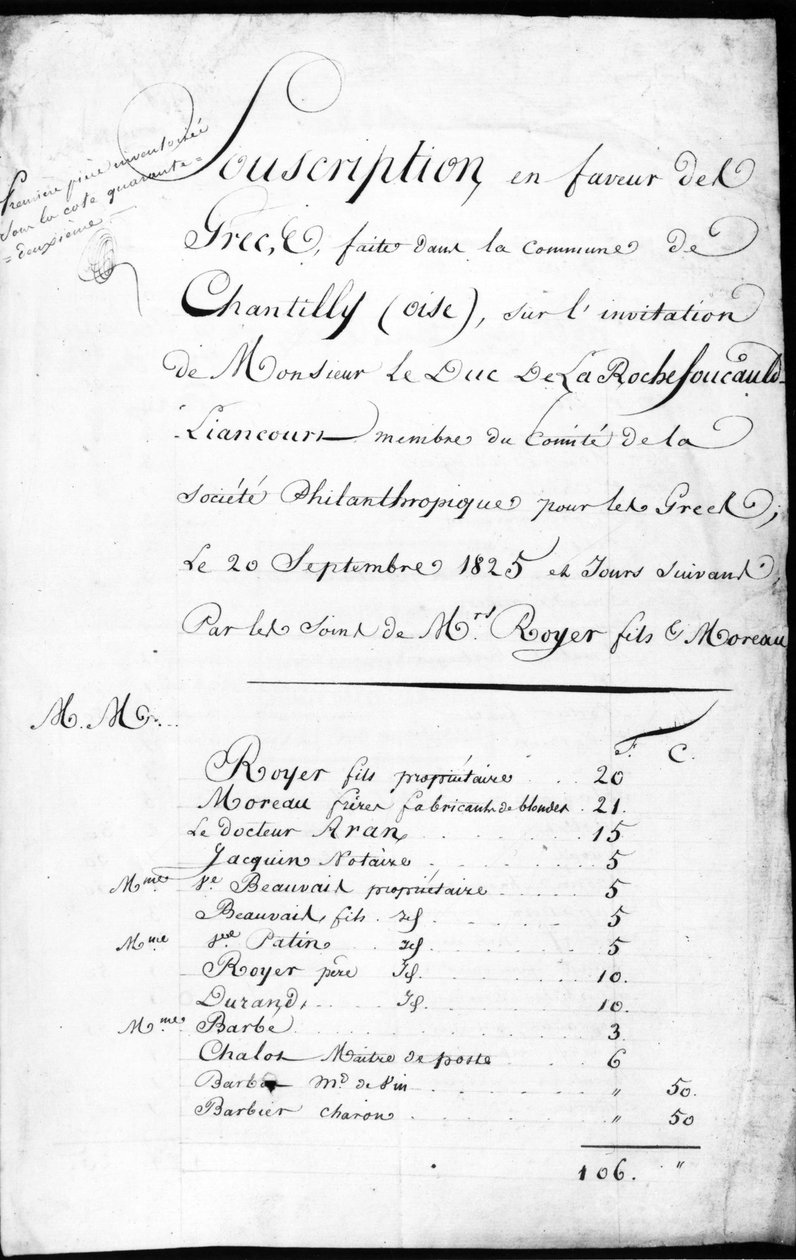 Première pièce inventoriée
sous la cote quarante=
=deuxième.
Souscription, en faveur des
Grecs, faite dans la commune de
Chantilly (oise), sur l'invitation
de Monsieur le Duc De La Rochefoucauld-
-Liancourt membre du Comité de la
société Philanthropique pour les Grecs,
Le 20 Septembre 1825 et Jours suivans,
Par les soins de Mrs Royer fils & Moreau
M. Mrs...
F. C.
Royer fils propriétaire . . 20
Moreau frères fabricants de blondes . 21.
Le docteur Aran . . . . 15
Jacquin Notaire . . . . 5
Mme Ve Beauvais propriétaire . . . . 5
Beauvais, fils Id . . . . 5
Mme Vve Patin Id . . . . 5
Royer père Id. . . . . 10.
Durand, Id. . . . . 10.
Mme Barbé . . . . 3.
Chalot Maitre de poste . . . . 6
Barbé Md de Vin . . . . " 50.
Barbier charon . . . . " 50
106. "